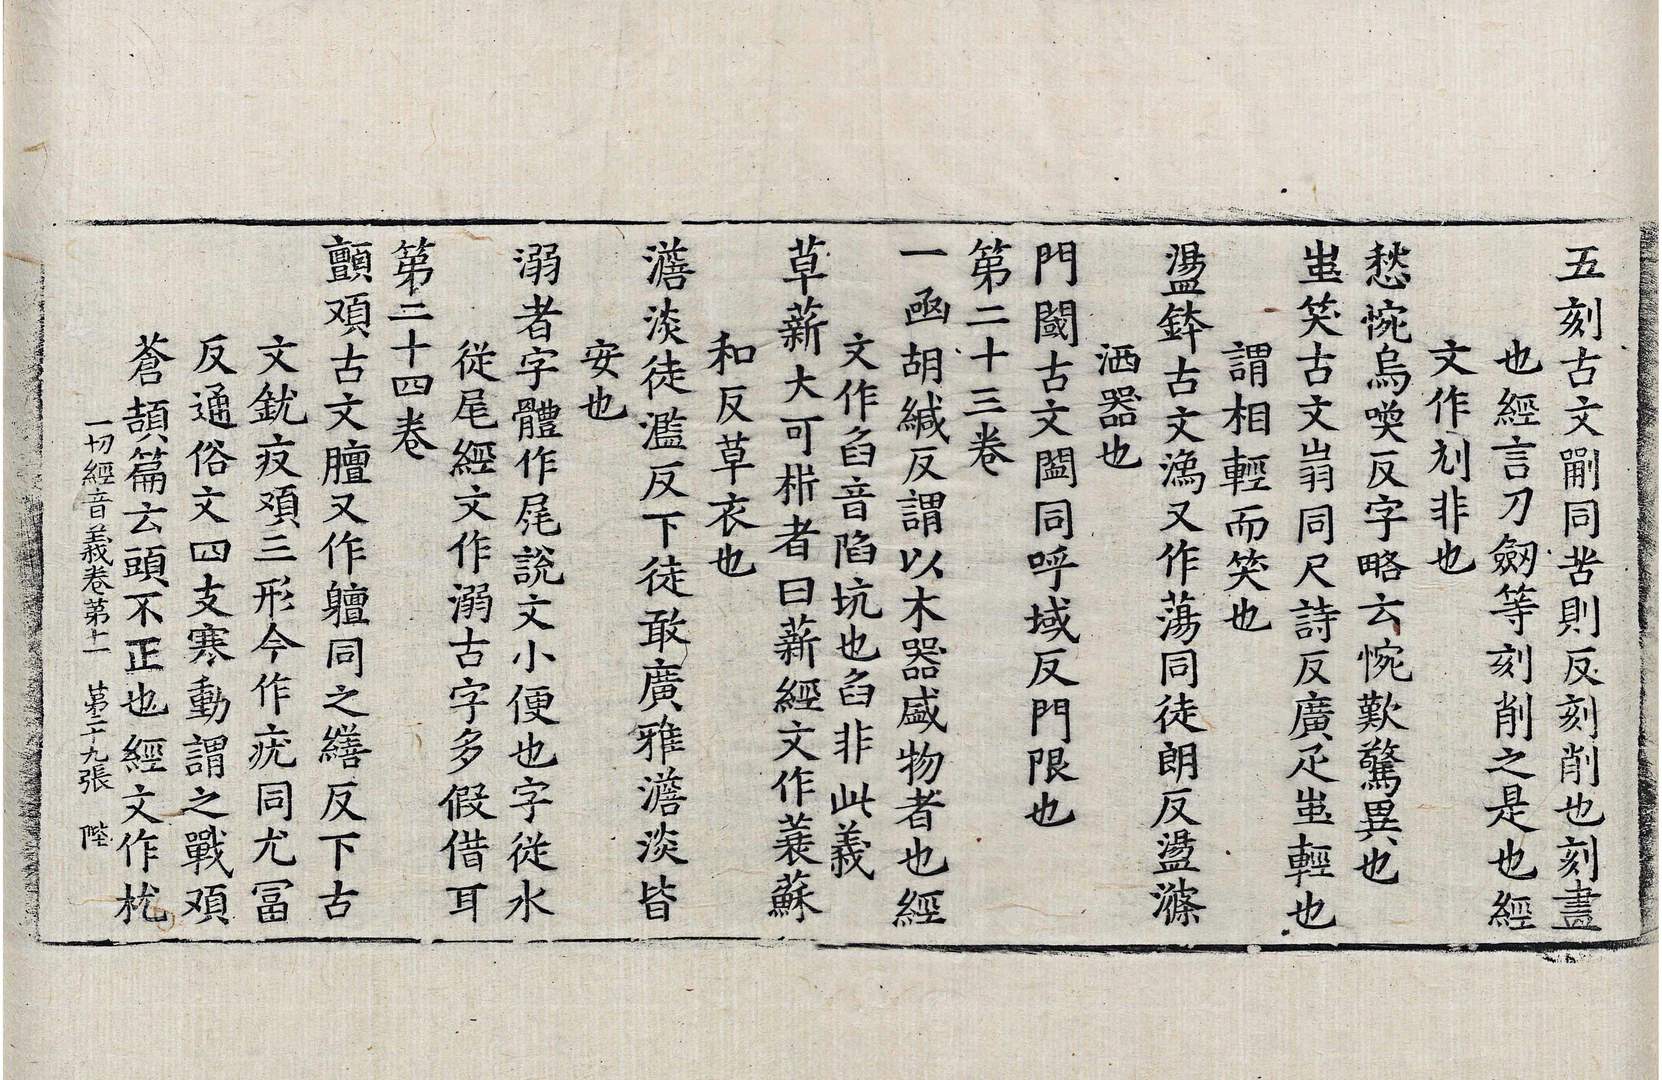 五刻古文㓸同苦則反刻削也刻畫
也經言刀劒等刻削之是也經
文作刾非也
愁惋烏喚反字略云惋歎驚異也
蚩笑古文㞴同尺詩反廣疋蚩輕也
謂相輕而笑也
盪鉢古文潒又作蕩同徒朗反盪滌
洒器也
門閾古文閾同呼域反門限也
第二十三卷
一函胡緘反謂以木器盛物者也經
文作臽音陷坑也臽非此義
草薪大可㭊者曰薪經文作蓑蘇
和反草衣也
澹淡徒濫反下徒敢廣雅澹淡皆
安也
溺者字體作㞙說文小便也字從水
從尾經文作溺古字多假借耳
第二十四卷
顫頄古文膻又作軆同之繕反下古
文䤧疫頄三形今作疣同尤富
反通俗文四支寒動謂之戰頄
蒼頡篇云頭不正也經文作㤜
一切經音義卷第十一 第二十九張 陛